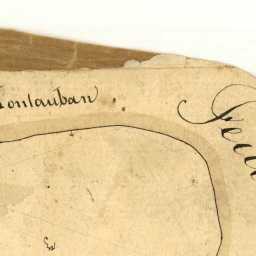 ontauban
Feu